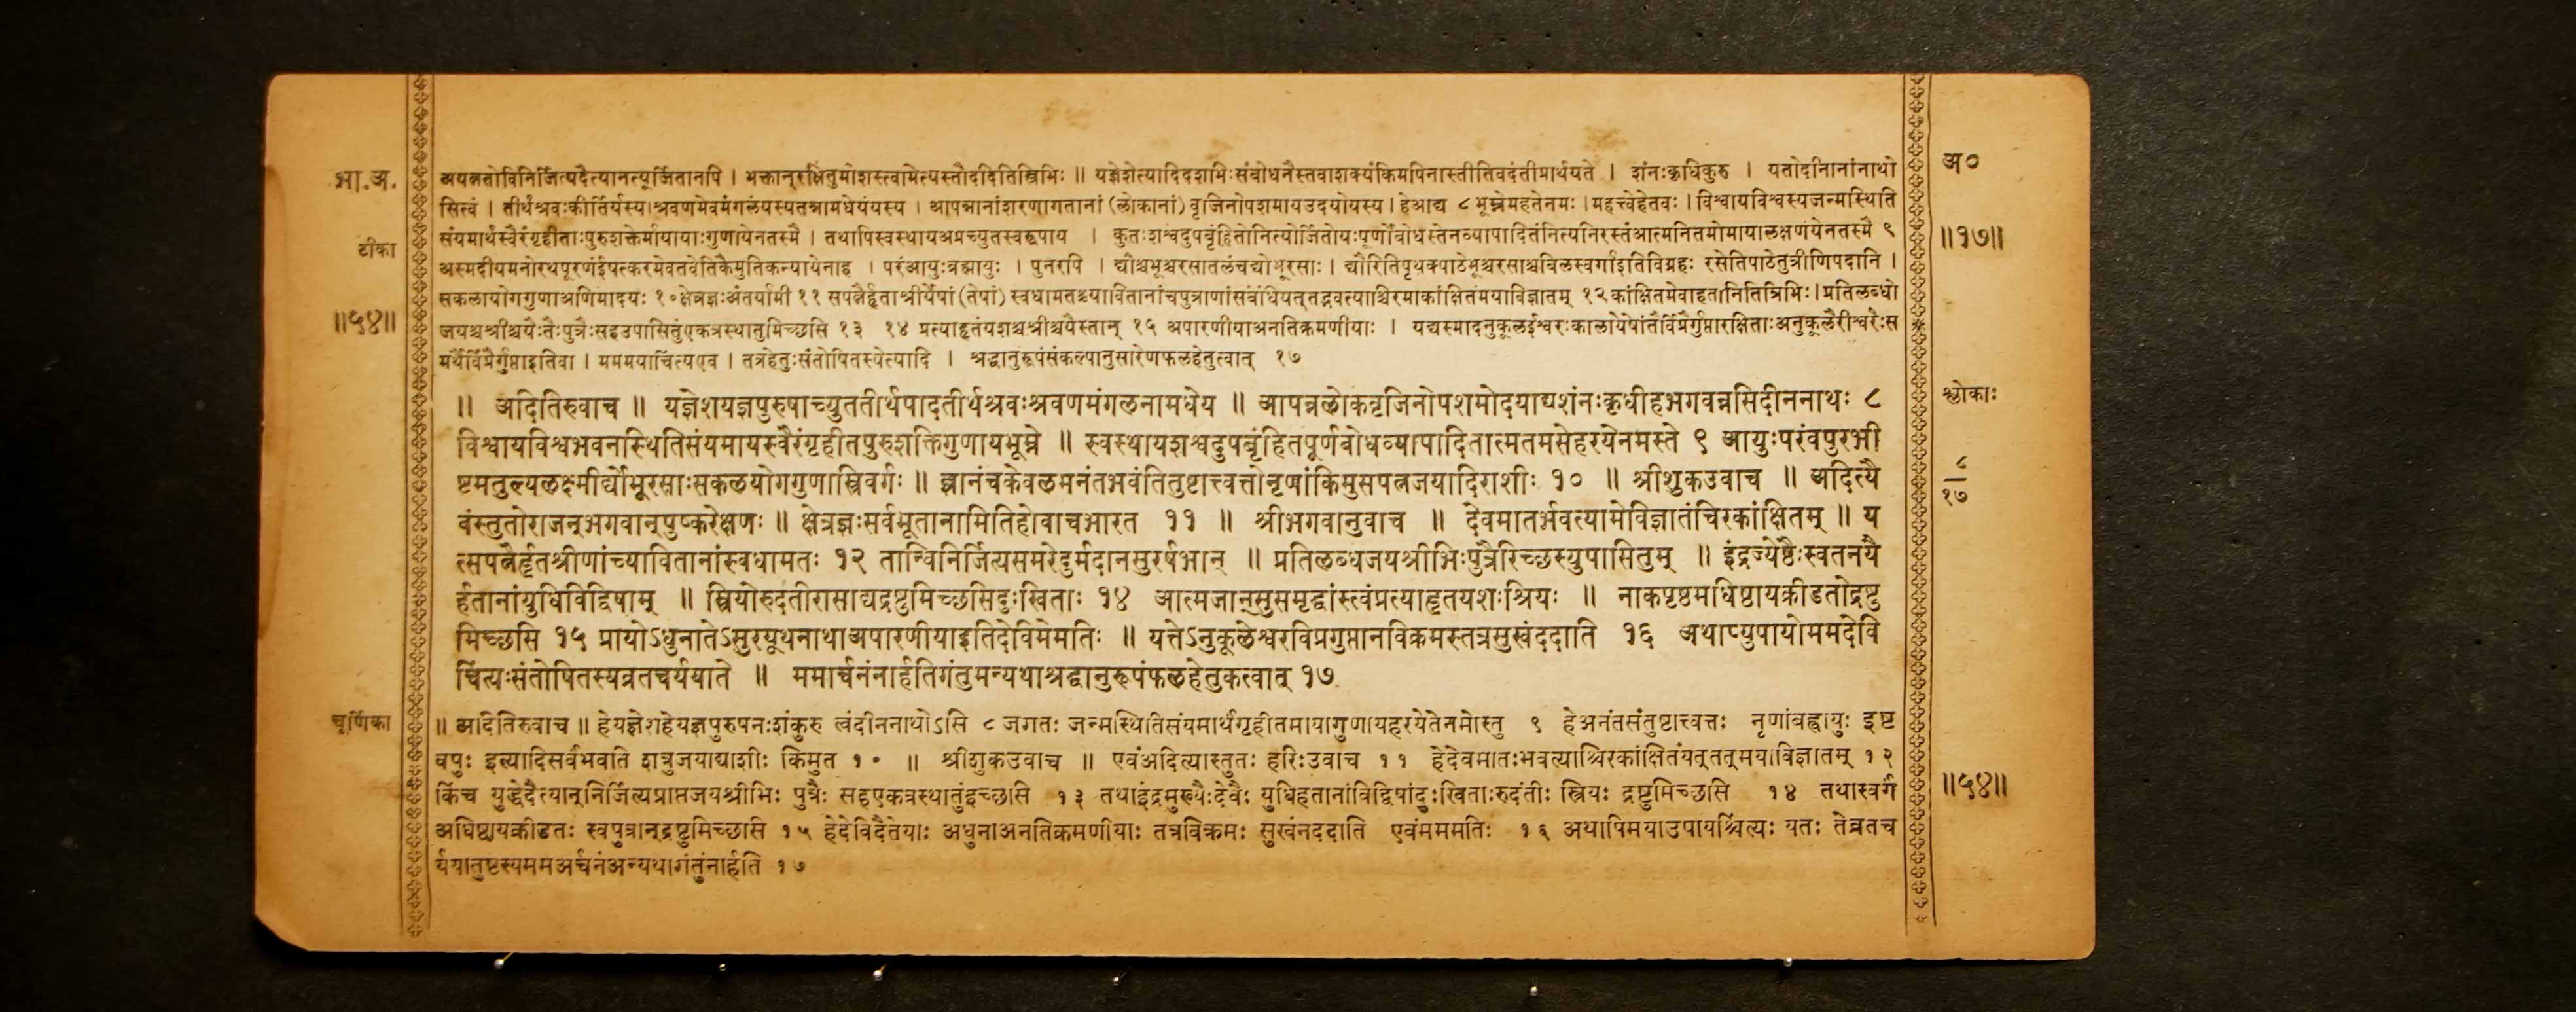 भा.अ.
टीका
॥५४॥
अयत्नतोविनिर्जित्यदैत्यानत्यूर्जितानपि । भक्तानुरक्षितुमीशस्त्वामेत्यस्तौददितिस्त्रिभिः ॥ यज्ञेशेत्यादिदशभिःसंबोधनैस्तवाशक्यंकिमपिनास्तीतिवदंतीप्रार्थयते । शंनःकृधिकुरु । यतोदीनानांनाथो
सित्वं । तीर्थंश्रवःकीर्तिर्यस्य।श्रवणमेवमंगलंयस्यतन्नामधेयंयस्य । आपन्नानांशरणागतानां (लोकानां) वृजिनोपशमायउदयोयस्य । हेआद्य ८ भूम्नेमहतेनमः । महत्त्वेहेतवः । विश्वायविश्वस्यजन्मस्थिति
संयमार्थंस्वैरंगृहीताःपुरुशक्तेर्मायायाःगुणायेनतस्मै । तथापिस्वस्थायअप्रच्युतस्वरूपाय । कुतःशश्वदुपबृंहितोनित्योर्जितोयःपूर्णोबोधस्तेनव्यापादितंनित्यनिरस्तंआत्मनितमोमायालक्षणंयेनतस्मै ९
अस्मदीयमनोरथपूरणंईषत्करमेवतवेतिकैमुतिकन्यायेनाह । परंआयुःब्रह्मायुः । पुनरपि । द्यौश्चभूश्चरसातलंचद्योभूरसाः । द्यौरितिपृथक्पाठेभूश्चरसाश्चबिलस्वर्गाइतिविग्रहः रसेतिपाठेतुत्रीणिपदानि ।
सकलायोगगुणाअणिमादयः १०क्षेत्रज्ञःअंतर्यामी ११ सपत्नैर्हृताश्रीर्येषां(तेषां) स्वधामतश्च्यावितानांचपुत्राणांसंबंधियत्तद्भवत्याश्चिरमाकांक्षितंमयाविज्ञातम् १२कांक्षितमेवाहतानितित्रिभिः।प्रतिलब्धो
जयश्चश्रीश्चयैःतैःपुत्रैःसहउपासितुंएकत्रस्थातुमिच्छसि १३ १४ प्रत्याहृतंयशश्चश्रीश्चयैस्तान् १५ अपारणीयाअनतिक्रमणीयाः । यद्यस्मादनुकूलईश्वरःकालोयेषांतैर्विप्रैर्गुप्तारक्षिताःअनुकूलैरीश्वरैःस
मर्थैर्विप्रैर्गुप्ताइतिवा । मममयाचिंत्यएव । तत्रहेतुःसंतोषितस्येत्यादि । श्रद्धानुरूपंसंकल्पानुसारेणफलहेतुत्वात् १७
॥ अदितिरुवाच ॥ यज्ञेशयज्ञपुरुषाच्युततीर्थपादतीर्थश्रवःश्रवणमंगलनामधेय ॥ आपन्नलोकवृजिनोपशमोदयाद्यशंनःकृधीहभगवन्नसिदीननाथः ८
विश्वायविश्वभवनस्थितिसंयमायस्वैरंगृहीतपुरुशक्तिगुणायभूम्ने ॥ स्वस्थायशश्वदुपबृंहितपूर्णबोधव्यापादितात्मतमसेहरयेनमस्ते ९ आयुःपरंवपुरभी
ष्टमतुल्यलक्ष्मीर्द्योभूरसाःसकलयोगगुणास्त्रिवर्गः ॥ ज्ञानंचकेवलमनंतभवंतितुष्टात्त्वत्तोनृणांकिमुसपत्नजयादिराशीः १० ॥ श्रीशुकउवाच ॥ अदित्यै
वंस्तुतोराजन्भगवान्पुष्करेक्षणः ॥ क्षेत्रज्ञःसर्वभूतानामितिहोवाचभारत ११ ॥ श्रीभगवानुवाच ॥ देवमातर्भवत्यामेविज्ञातंचिरकांक्षितम् ॥ य
त्सपत्नैर्हृतश्रीणांच्यावितानांस्वधामतः १२ तान्विनिर्जित्यसमरेदुर्मदानसुरर्षभान् ॥ प्रतिलब्धजयश्रीभिःपुत्रैरिच्छस्युपासितुम् ॥ इंद्रज्येष्ठैःस्वतनयै
र्हतानांयुधिविद्विषाम् ॥ स्त्रियोरुदतीरासाद्यद्रष्टुमिच्छसिदुःखिताः १४ आत्मजान्सुसमृद्धांस्त्वंप्रत्याहृतयशःश्रियः ॥ नाकपृष्ठमधिष्ठायक्रीडतोद्रष्टु
मिच्छसि १५ प्रायोऽधुनातेऽसुरयूथनाथाअपारणीयाइतिदेविमेमतिः ॥ यत्तेऽनुकूलेश्वरविप्रगुप्तानविक्रमस्तत्रसुखंददाति १६ अथाप्युपायोममदेवि
चिंत्यःसंतोषितस्यव्रतचर्ययाते ॥ ममार्चनंनार्हतिगंतुमन्यथाश्रद्धानुरूपंफलहेतुकत्वात् १७
चूर्णिका
॥ अदितिरुवाच ॥ हेयज्ञेशहेयज्ञपुरुषनःशंकुरु त्वंदीननाथोऽसि ८ जगतः जन्मस्थितिसंयमार्थंगृहीतमायागुणायहरयेतेनमोस्तु ९ हेअनंतसंतुष्टात्त्वत्तः नृणांबह्वायुः इष्ट
वपुः इत्यादिसर्वंभवति शत्रुजयाद्याशीः किमुत १० ॥ श्रीशुकउवाच ॥ एवंअदित्यास्तुतः हरिःउवाच ११ हेदेवमातःभवत्याश्चिरकांक्षितंयत्तत्मयाविज्ञातम् १२
किंच युद्धेदैत्यान्निर्जित्यप्राप्तजयश्रीभिः पुत्रैः सहएकत्रस्थातुंइच्छसि १३ तथाइंद्रमुख्यैःदेवैः युधिहतानांविद्विषांदुःखिताःरुदंतीः स्त्रियः द्रष्टुमिच्छसि १४ तथास्वर्गं
अधिष्ठायक्रीडतः स्वपुत्रान्द्रष्टुमिच्छसि १५ हेदेविदैतेयाः अधुनाअनतिक्रमणीयाः तत्रविक्रमः सुखंनददाति एवंमममतिः १६ अथापिमयाउपायश्चिंत्यः यतः तेव्रतच
र्ययातुष्टस्यममअर्चनंअन्यथागंतुंनार्हति १७
अ०
॥१७॥
श्लोकाः
८
१७
॥५४॥